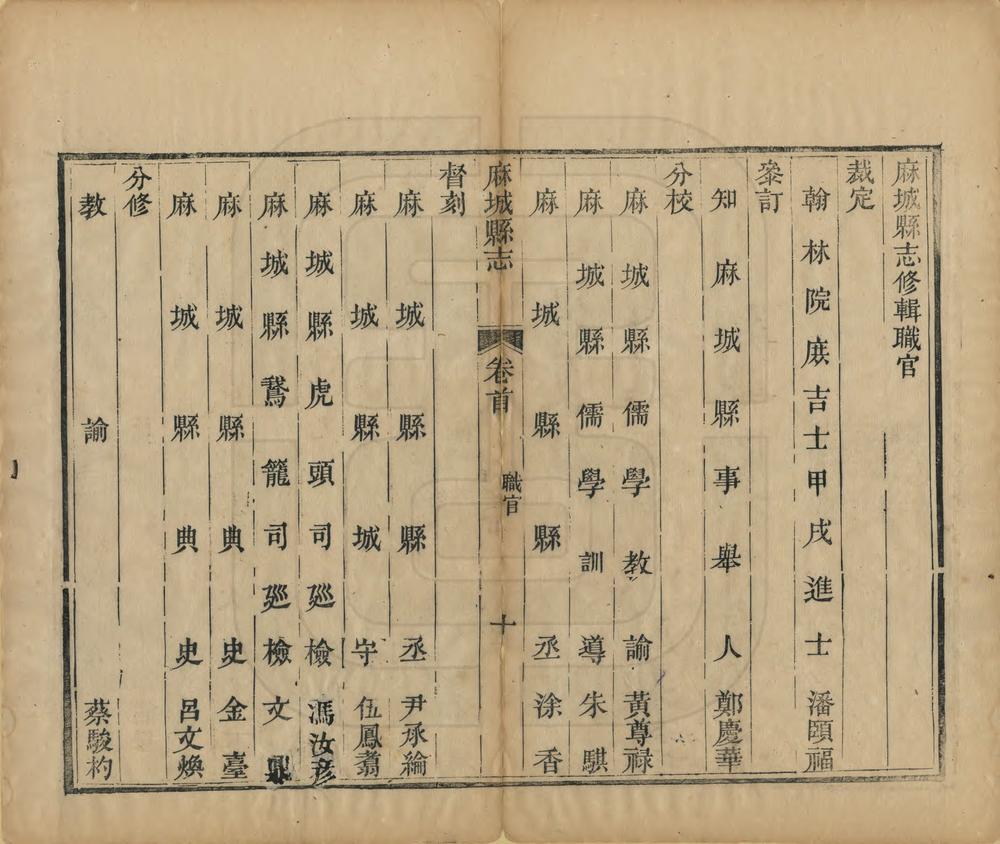 麻城縣志修輯職官
裁定
翰林院庶吉士甲戌進士潘頤福
叅訂
知麻城縣事舉人鄭慶華
分校
麻城縣儒學教諭黃尊祿
麻城縣儒學訓導朱騏
麻城縣縣丞涂香
麻城縣志
卷首
職官
十
督刻
麻城縣縣丞尹承綸
麻城縣城守伍鳳翥
麻城縣虎頭司廵檢馮汝彥
麻城縣鵞籠司廵檢文
麻城縣典史金臺
麻城縣典史呂文煥
分修
教諭蔡駿杓